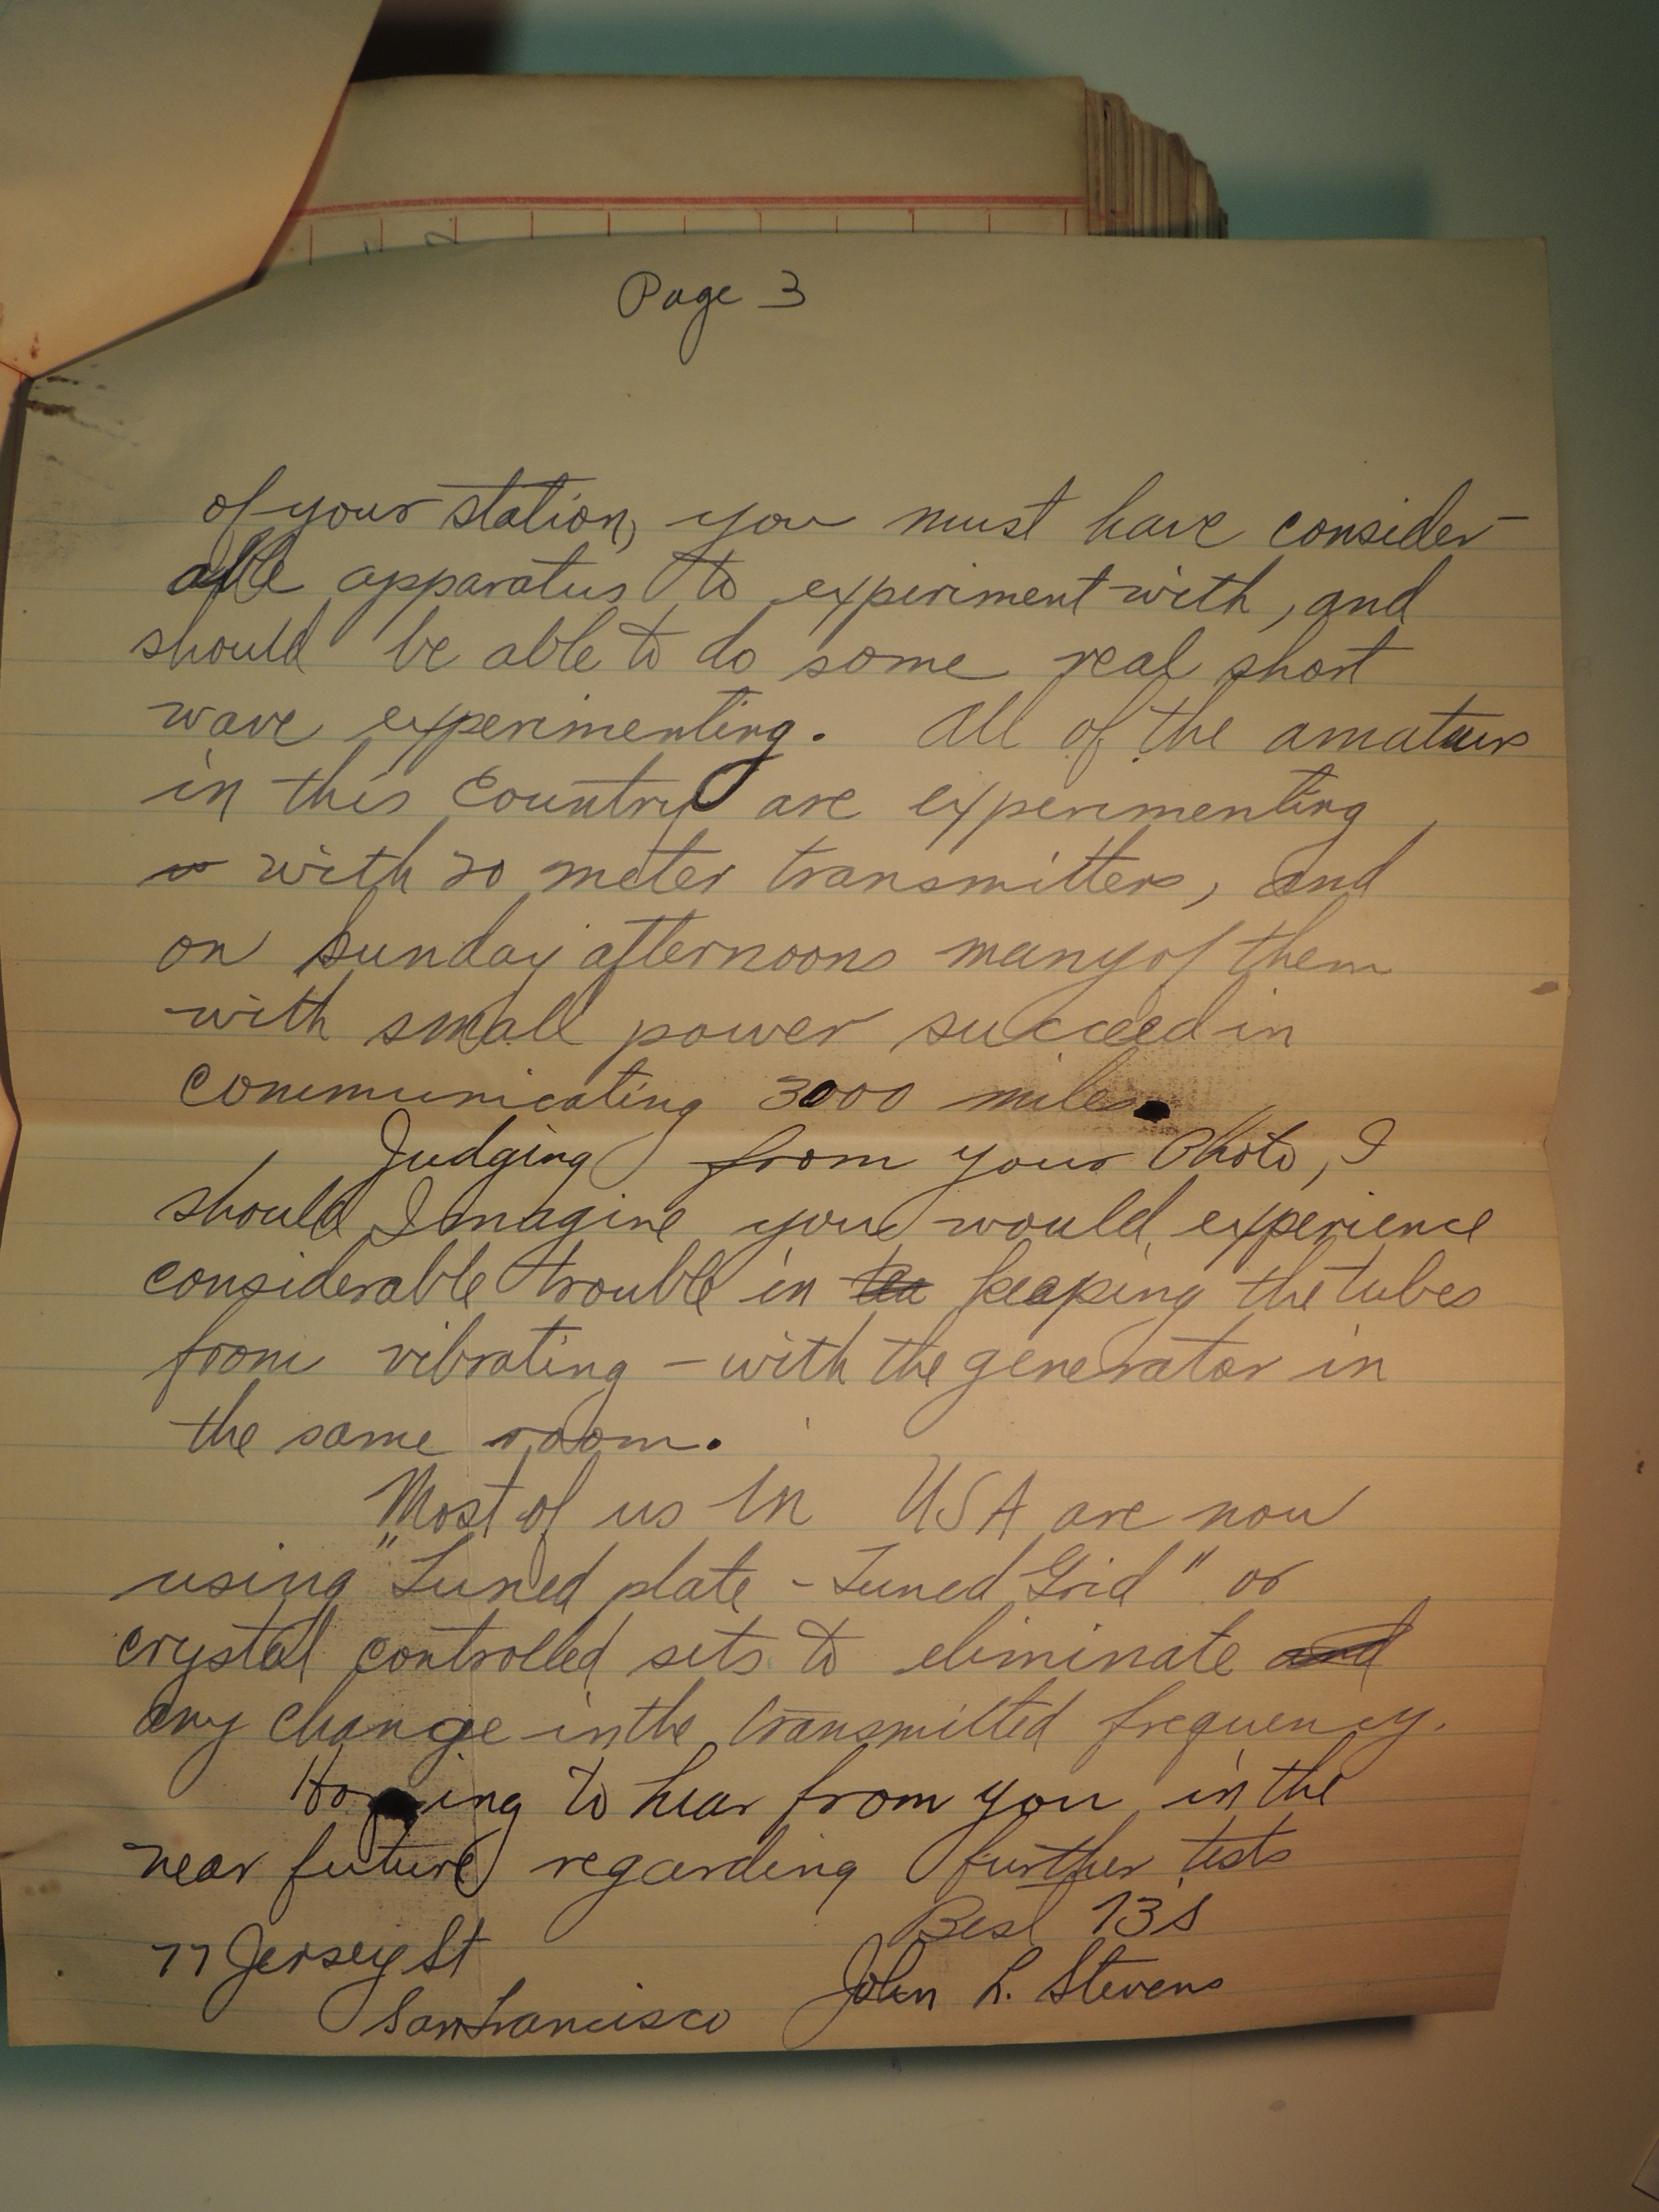 Page 3
of your station, you must have consider-
able apparatus to experiment with, and
should be able to do some real short
wave experimenting. All of the amateurs
in this Country are experimenting
w with 20 meter transmitters, and
on Sunday afternoons many of them
with small power succeed in
communicating 3000 miles.
Judging from your Photo, I
should Imagine you would experience
considerable trouble in keeping the tubes
from vibrating - with the generator in
the same room.
Most of us In USA are now
using "Tuned plate - Tuned Grid" or
crystal controlled sets to eliminate and
any change in the transmitted frequency.
Hoping to hear from you in the
near future regarding further tests
Best 73s
77 Jersey St
John L. Stevens
San Francisco